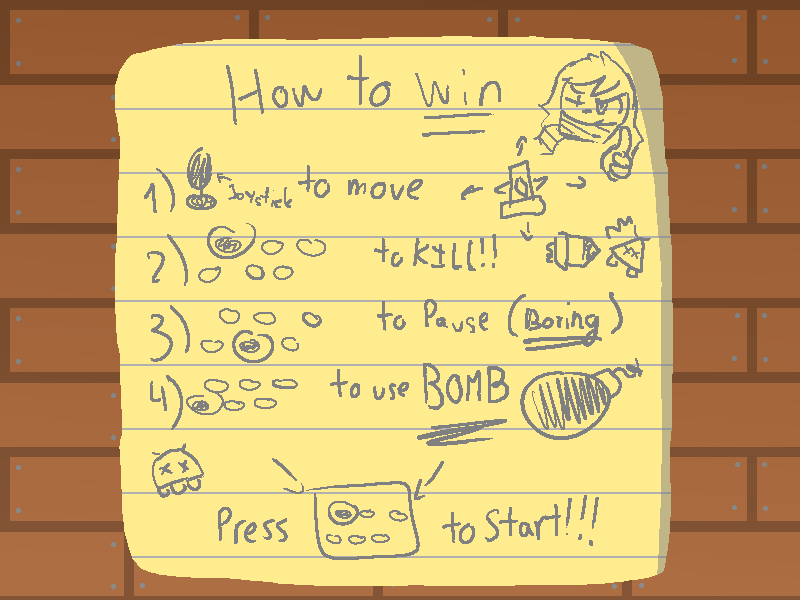 How to win
1) Joystick to move
2) to KILL!!
3) to Pause (Boring)
4) to use BOMB
Press to Start!!!